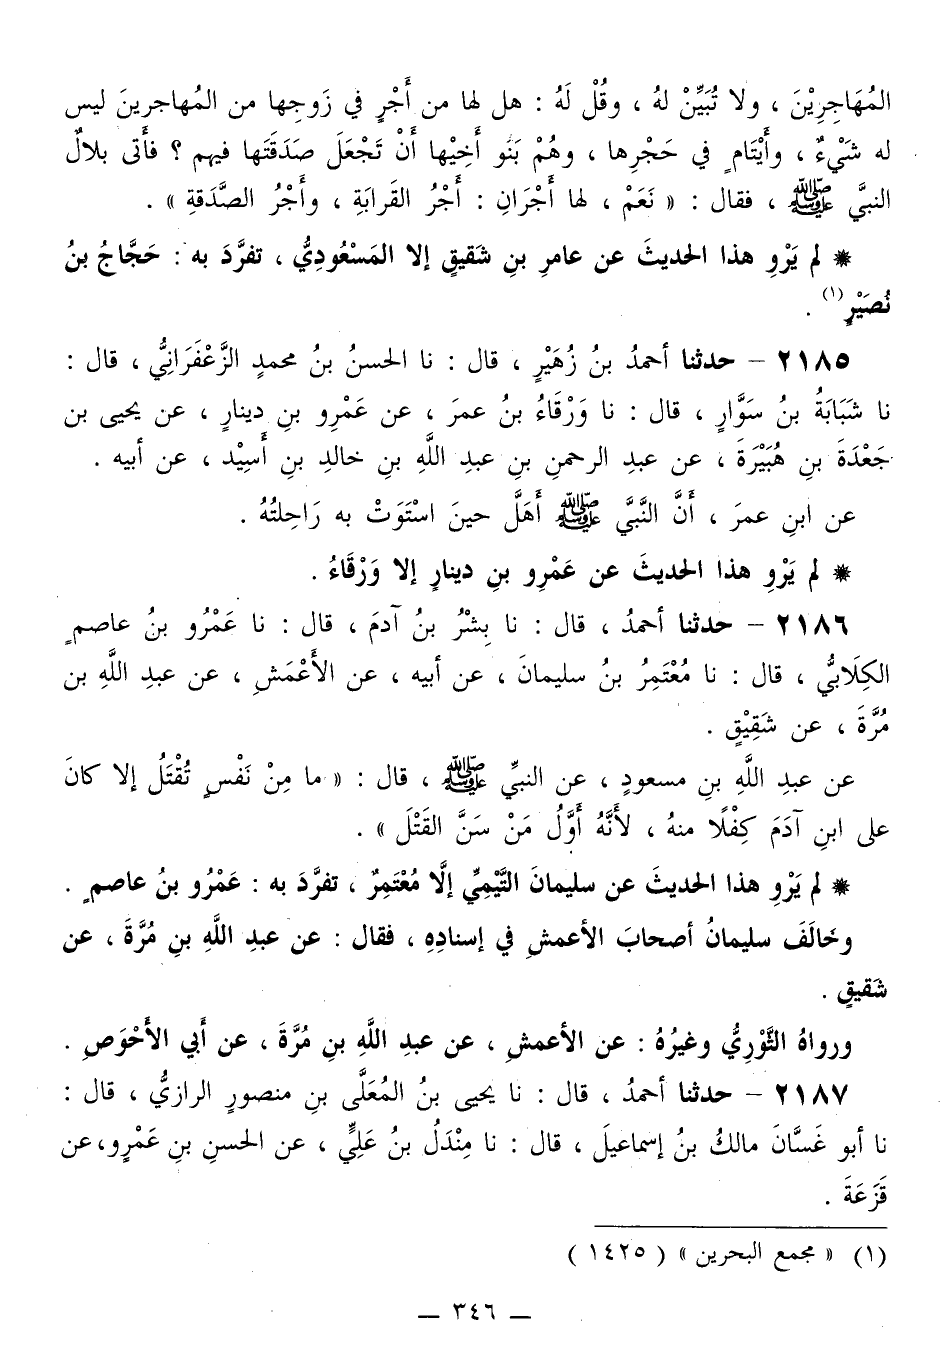 المُهَاجِرِيْنَ ، ولا تُبَيِّنْ لهُ ، وقُلْ لَهُ : هل لها من أَجْرٍ في زَوجِها من المُهاجرينَ ليس
له شَيْءٌ ، وأَيْتَامٍ في حَجْرِها ، وهُمْ بَنُو أَخِيْها أَنْ تَجْعَلَ صَدَقَتَها فيهم ؟ فأَتى بلالٌ
النبيَّ ﷺ ، فقال : « نَعَمْ ، لها أَجْرَانِ : أَجْرُ القَرابَةِ ، وأَجْرُ الصَّدَقةِ » .
* لم يَرْوِ هذا الحديثَ عن عامرِ بنِ شقيقٍ إلا المَسْعُودِيُّ ، تفرَّدَ به : حَجَّاجُ بنُ
نُصَيْرٍ (١) .
٢١٨٥ – حدثنا أحمدُ بنُ زُهَيْرٍ ، قال : نا الحسنُ بنُ محمدٍ الزَّعْفَرَانِيُّ ، قال :
نا شَبَابَةُ بنُ سَوَّارٍ ، قال : نا وَرْقَاءُ بنُ عمرَ ، عن عَمْرِو بنِ دينارٍ ، عن يحيى بن
جَعْدَةَ بنِ هُبَيْرَةَ ، عن عبدِ الرحمنِ بنِ عبدِ اللَّهِ بنِ خالدِ بنِ أَسِيْد ، عن أبيه .
عن ابنِ عمرَ ، أَنَّ النَّبيَّ ﷺ أَهَلَّ حينَ اسْتَوَتْ به رَاحِلتُهُ .
* لم يَرْوِ هذا الحديثَ عن عَمْرِو بنِ دينارٍ إلا وَرْقَاءُ .
٢١٨٦ – حدثنا أحمدُ ، قال : نا بِشْرُ بنُ آدمَ ، قال : نا عَمْرُو بنُ عاصمٍ
الكِلَابيُّ ، قال : نا مُعْتَمِرُ بنُ سليمانَ ، عن أبيه ، عن الأَعْمَشِ ، عن عبدِ اللَّهِ بن
مُرَّةَ ، عن شَقِيْقٍ .
عن عبدِ اللَّهِ بنِ مسعودٍ ، عن النبيِّ ﷺ ، قال : « ما مِنْ نَفْسٍ تُقْتَلُ إلا كانَ
على ابنِ آدَمَ كِفْلًا منهُ ، لأَنَّهُ أَوَّلُ مَنْ سَنَّ القَتْلَ » .
* لم يَرْوِ هذا الحديثَ عن سليمانَ التَّيْمِيِّ إلَّا مُعْتَمِرٌ ، تفرَّدَ به : عَمْرُو بنُ عاصمٍ .
وخَالَفَ سليمانُ أصحابَ الأعمشِ في إسنادِهِ ، فقال : عن عبدِ اللَّهِ بنِ مُرَّةَ ، عن
شقيقٍ .
ورواهُ الثَّوْرِيُّ وغيرُهُ : عن الأعمشِ ، عن عبدِ اللَّهِ بنِ مُرَّةَ ، عن أَبي الأَحْوَصِ .
٢١٨٧ – حدثنا أحمدُ ، قال : نا يحيى بنُ المُعَلَّى بنِ منصورٍ الرازيُّ ، قال :
نا أبو غَسَّانَ مالكُ بنُ إسماعيلَ ، قال : نا مِنْدَلُ بنُ عَلِيٍّ ، عن الحسنِ بنِ عَمْرٍو، عن
قَزَعَةَ .
(١) « مجمع البحرين » ( ١٤٢٥ )
— ٣٤٦ —